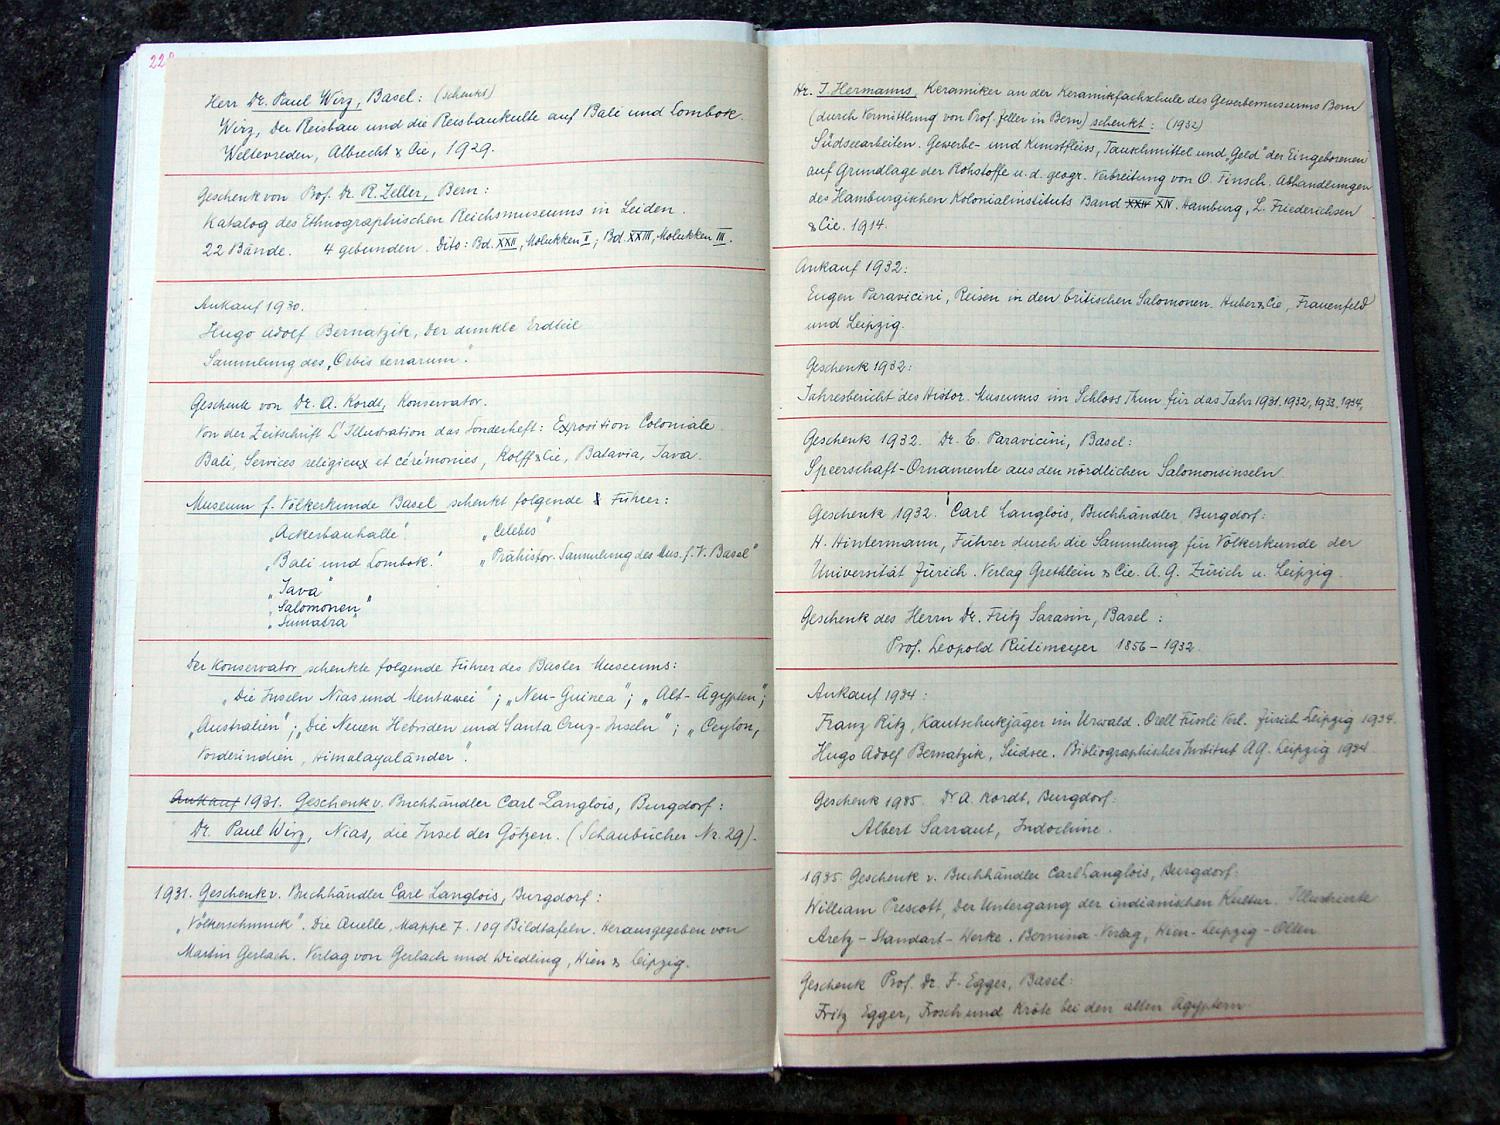 22
Herr Dr. Paul Wirz, Basel: (schenkt)
Wirz, Der Reisbau und die Reisbaukulte auf Bali und Lombok.
Weltevreden, Albrecht & Cie, 1929.
Geschenk von Prof. Dr. R. Zeller, Bern:
Katalog des Ethnographischen Reichsmuseums in Leiden.
22 Bände. 4 gebunden. Dito: Bd. XXII, Molukken I; Bd. XXIII, Molukken III.
Ankauf 1930.
Hugo Adolf Bernatzik, Der dunkle Erdteil
Sammlung des „Orbis terrarum".
Geschenk von Dr. A. Kordt, Konservator.
Von der Zeitschrift L'Illustration das Sonderheft: Exposition Coloniale
Bali, Services religieux et cérémonies, Kolff & Cie, Batavia, Java.
Museum f. Völkerkunde Basel schenkt folgende Führer:
„Ackerbauhalle" „Celebes"
„Bali und Lombok." „Prähistor. Sammlung des Mus. f. V. Basel"
„Java"
„Salomonen"
„Sumatra"
Der Konservator schenkte folgende Führer des Basler Museums:
„Die Inseln Nias und Mentawei"; „Neu-Guinea"; „Alt-Ägypten";
„Australien"; „Die Neuen Hebriden und Santa Cruz-Inseln"; „Ceylon,
Vorderindien, Himalayaländer".
Ankauf 1931. Geschenk v. Buchhändler Carl Langlois, Burgdorf:
Dr. Paul Wirz, Nias, die Insel der Götzen. (Schaubücher Nr. 29).
1931. Geschenk v. Buchhändler Carl Langlois, Burgdorf:
„Völkerschmuck". Die Quelle, Mappe 7. 109 Bildtafeln. Herausgegeben von
Martin Gerlach. Verlag von Gerlach und Wiedling, Wien & Leipzig.
Hr. J. Hermanns, Keramiker an der Keramikfachschule des Gewerbemuseums Bern
(durch Vermittlung von Prof. Zeller in Bern) schenkt: (1932)
Südseearbeiten. Gewerbe- und Kunstfleiss, Tauschmittel und „Geld" der Eingeborenen
auf Grundlage der Rohstoffe u. d. geogr. Verbreitung von O. Finsch. Abhandlungen
des Hamburgischen Kolonialinstituts Band XXIV XIV. Hamburg, L. Friederichsen
& Cie. 1914.
Ankauf 1932:
Eugen Paravicini, Reisen in den britischen Salomonen. Huber & Cie, Frauenfeld
und Leipzig.
Geschenk 1932:
Jahresbericht des Histor. Museums im Schloss Thun für das Jahr 1931. 1932, 1933. 1934,
Geschenk 1932. Dr. E. Paravicini, Basel:
Speerschaft-Ornamente aus den nördlichen Salomonsinseln
Geschenk 1932. Carl Langlois, Buchhändler, Burgdorf:
H. Hintermann, Führer durch die Sammlung für Völkerkunde der
Universität Zürich. Verlag Grethlein & Cie. A.G. Zürich u. Leipzig.
Geschenk des Herrn Dr. Fritz Sarasin, Basel:
Prof. Leopold Rütimeyer 1856 – 1932.
Ankauf 1934:
Franz Ritz, Kautschukjäger im Urwald. Orell Füssli Verl. Zürich Leipzig 1934.
Hugo Adolf Bernatzik, Südsee. Bibliographisches Institut A.G. Leipzig 1934
Geschenk 1935. Dr A. Kordt, Burgdorf:
Albert Sarraut, Indochine.
1935. Geschenk v. Buchhändler Carl Langlois, Burgdorf:
William Prescott, Der Untergang der indianischen Kultur. Illustrierte
Aretz-Standart-Werke. Bernina-Verlag, Wien-Leipzig-Olten
Geschenk Prof. Dr. F. Egger, Basel:
Fritz Egger, Frosch und Kröte bei den alten Ägyptern